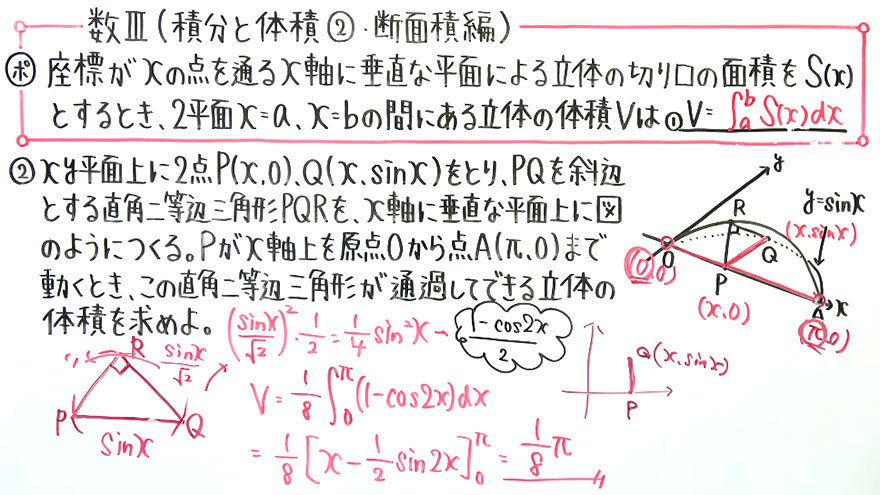 数Ⅲ(積分と体積②・断面積編)
ポ 座標がxの点を通るx軸に垂直な平面による立体の切り口の面積をS(x)
とするとき、2平面x=a、x=bの間にある立体の体積Vは①V=∫_a^b S(x)dx
② xy平面上に2点P(x,0)、Q(x,sinx)をとり、PQを斜辺
とする直角二等辺三角形PQRを、x軸に垂直な平面上に図
のようにつくる。Pがx軸上を原点Oから点A(π,0)まで
動くとき、この直角二等辺三角形が通過してできる立体の
体積を求めよ。
(sinx/√2)²・1/2=1/4 sin²x
1-cos2x/2
R
sinx/√2
P
Q
sinx
V=1/8∫_0^π(1-cos2x)dx
=1/8[x-1/2 sin2x]_0^π=1/8 π
y
y=sinx
R
(x,sinx)
Q
O
(0,0)
P
(x,0)
A
x
(π,0)
Q(x,sinx)
P